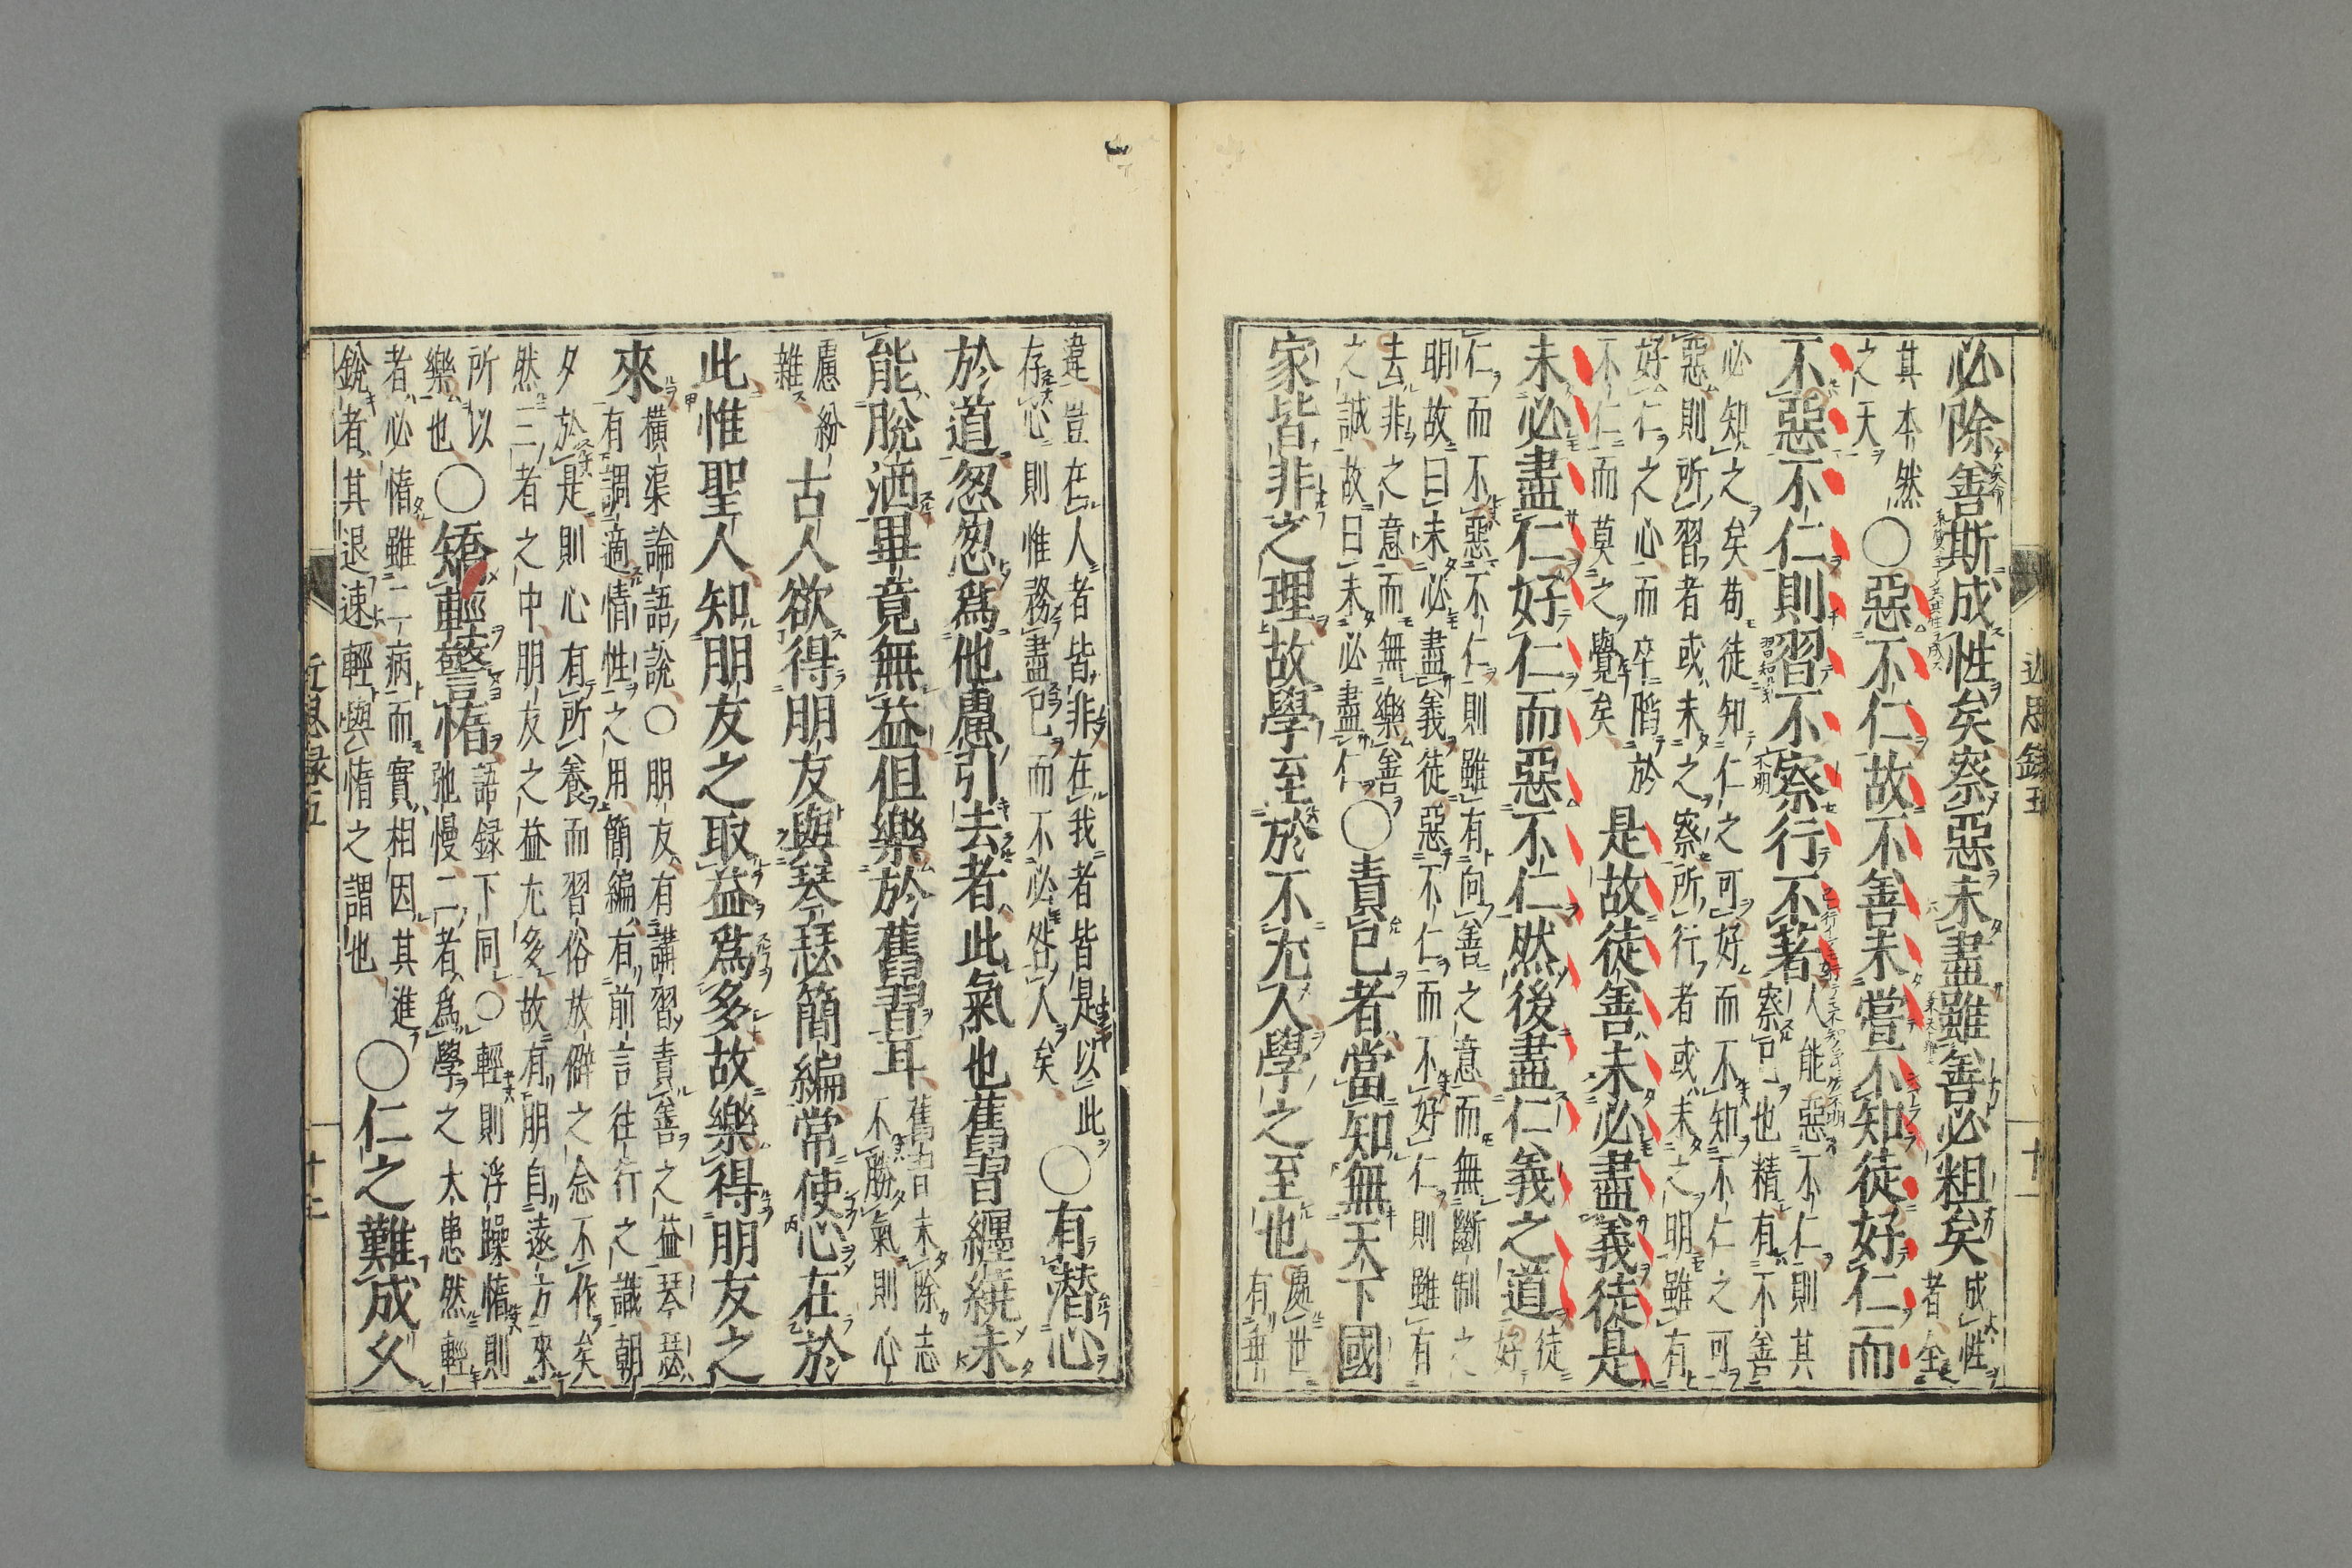 近思録五　十一
必除善斯成性矣察惡未盡雖善必粗矣
成性
者全
其本然
之天
〇惡不仁故不善未嘗不知徒好仁而
不惡不仁則習不察行不著
人能惡不仁則其
察己也精有不善
必知之矣苟徒知仁之可好而不知不仁之可
惡則所習者或未之察所行者或未之明雖有
好仁之心而卒䧟於
不仁而莫之覺矣
是故徒善未必盡義徒是
未必盡仁好仁而惡不仁然後盡仁義之道
徒
好
仁而不惡不仁則雖有向善之意而無斷制之
明故曰未必盡義徒惡不仁而不好仁則雖有
去非之意而無樂善
之誠故曰未必盡仁
〇責己者當知無天下國
家皆非之理故學至於不尤人學之至也
處世
有乖
違豈在人者皆非在我者皆是以此
存心則惟務盡己而不必咎人矣
〇有潜心
於道忽忽爲他慮引去者此氣也舊習纏繞未
能脫洒畢竟無益但樂於舊習耳
舊習未除志
不勝氣則心
慮紛
雜
古人欲得朋友與琴瑟簡編常使心在於
此惟聖人知朋友之取益爲多故樂得朋友之
來
横渠論語說〇朋友有講習責善之益琴瑟
有調適情性之用簡編有前言往行之識朝
夕於是則心有所養而習俗放僻之念不作矣
然三者之中朋友之益尤多故有朋自遠方來
所以
樂也
〇矯輕警惰
語録下同〇輕則浮躁惰則
弛慢二者爲學之大患然輕
者必惰雖二病而實相因其進
銳者其退速輕與惰之謂也
〇仁之難成久
近思録五　十二